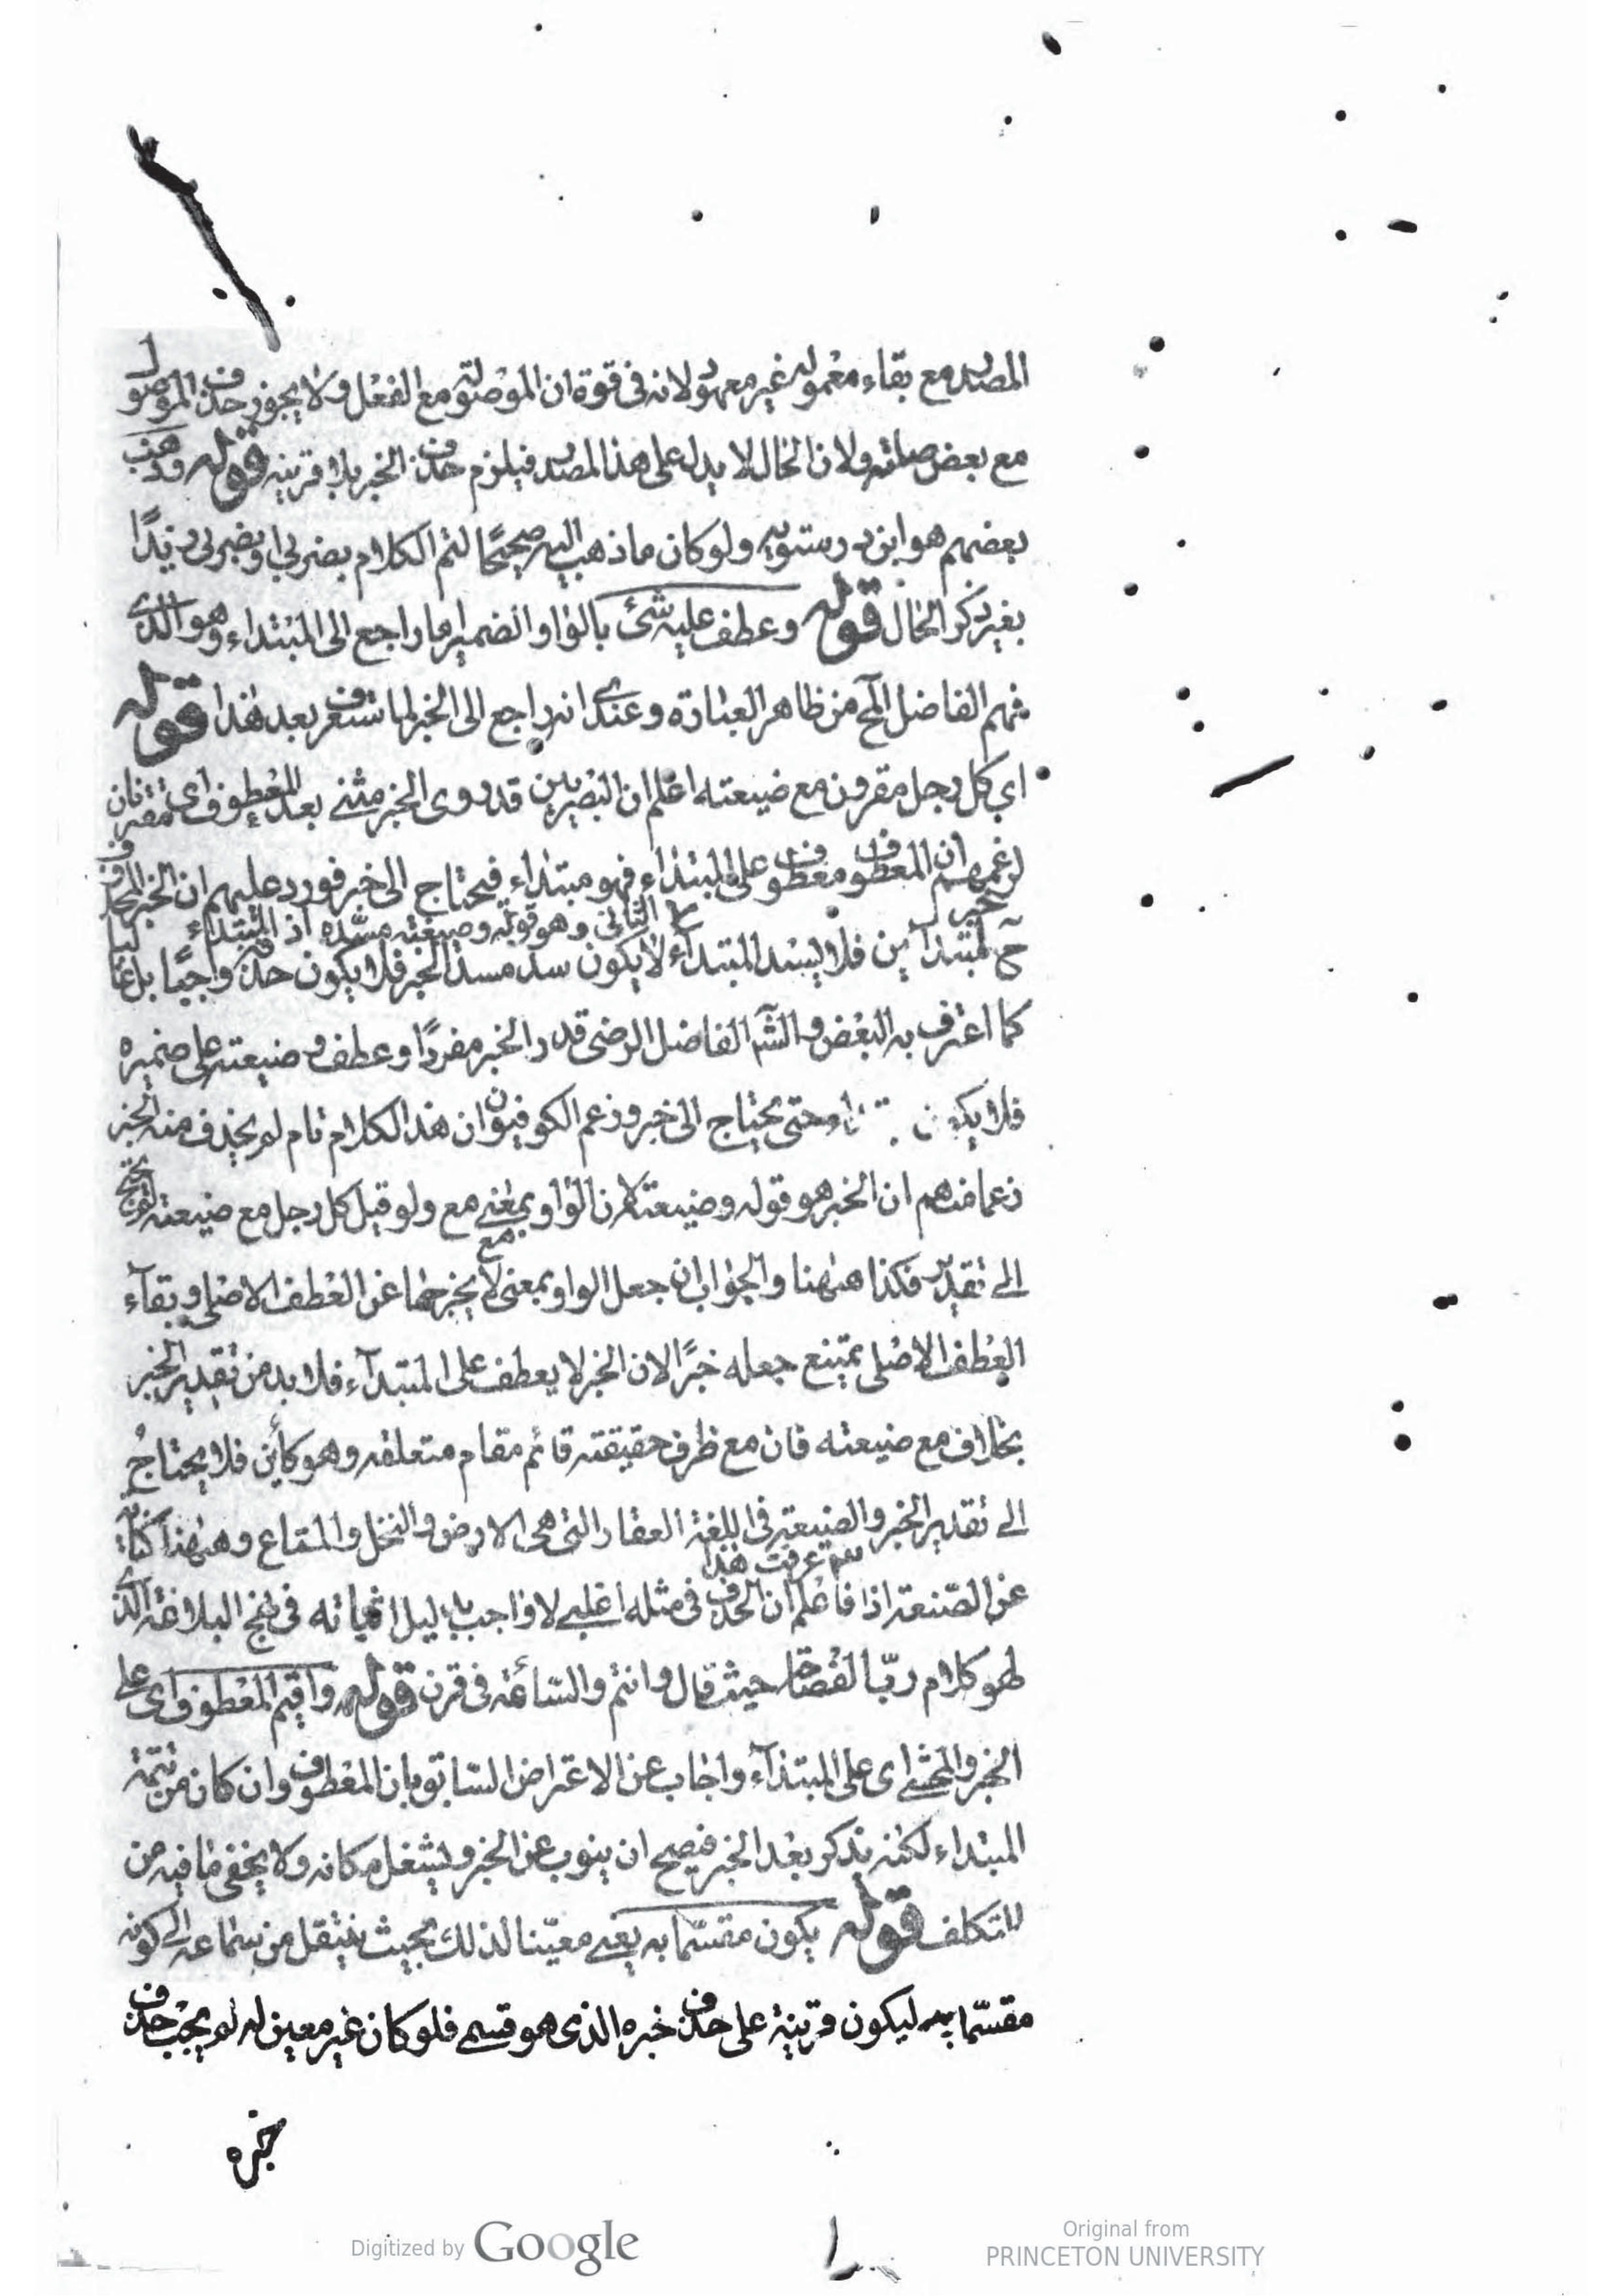 المصدر مع بقاء معموله غير معهود ولانه فى قوة ان الموصولة مع الفعل ولا يجوز حذف الموصول
مع بعض صلته ولان الحال لا يدل على هذا المصدر فيلزم حذف الخبر بلا قرينه قوله وذهب
بعضهم هو ابن درستويه ولو كان ما ذهب اليه صحيحًا لتم الكلام بضربى او بضربى زيدًا
بغير ذكر الحال قوله وعطف عليه شئ بالواو الضمير اما راجع الى المبتداء وهو الذى
فهم الفاضل المح من ظاهر العبارة وعندى انه راجع الى الخبر لما ستعرف بعد هذا قوله
اى كل رجل مقرون مع ضيعته اعلم ان البصريين قدروى الخبر مثنى بعد المعطوف اى مقترنان
لزعمهم ان المعطوف معطوف على المبتداء فهو مبتداء فيحتاج الى خبر فورد عليهم ان الخبر المحذوف
ح خبر لمبتدأين فلا يسد المبتداء الثانى وهو قوله وضيعته مسده اذ المبتداء
لا يكون سد مسد الخبر فلا يكون حذفه واجبًا بل غالبا
كما اعترف به البعض والشه الفاضل الرضى قدر الخبر مفردًا وعطف وضيعته على ضميره
فلا يكون حتى يحتاج الى خبر وزعم الكوفيون ان هذا الكلام تام لم يحذف منه الخبر
زعما منهم ان الخبر هو قوله وضيعته لان الواو بمعنى مع ولو قيل كل رجل مع ضيعته لم يحتج
الى تقدير فكذا هنهنا والجواب ان جعل الواو بمعنى مع لا يخرجها عن العطف الاصلى وبقاء
العطف الاصلى يمتنع جعله خبرًا لان الخبر لا يعطف على المبتدآء فلا بد من تقدير الخبر
بخلاف مع ضيعته فان مع ظرف حقيقته قائم مقام متعلقه وهو كأين فلا يحتاج
الى تقدير الخبر والضيعة فى اللغة العقار التى هى الارض والنخل والمتاع وهنهنا كناية
عن الصنعة اذا عرفت هذا فاعلم ان الحذف فى مثله اغلبى لا واجب بدليل اثباته فى نهج البلاغة الذى
هو كلام ربّ الفصاحة حيث قال وانتم والساعة فى قرن قوله واقيم المعطوف اى على
الخبر والمحشى اى على المبتدآء واجاب عن الاعتراض السابق بان المعطوف وان كان من تتمة
المبتداء لكنه يذكر بعد الخبر فيصح ان ينوب عن الخبر ويشغل مكانه ولا يخفى ما فيه من
التكلف قوله يكون مقسّما به يعنى معيّنا لذلك بحيث ينتقل من سماعه الى كونه
مقسّما به ليكون قرينة على حذف خبره الذى هو قسم فلو كان غير معين له لم يجب حذف
خبره
Digitized by Google
Original from
PRINCETON UNIVERSITY